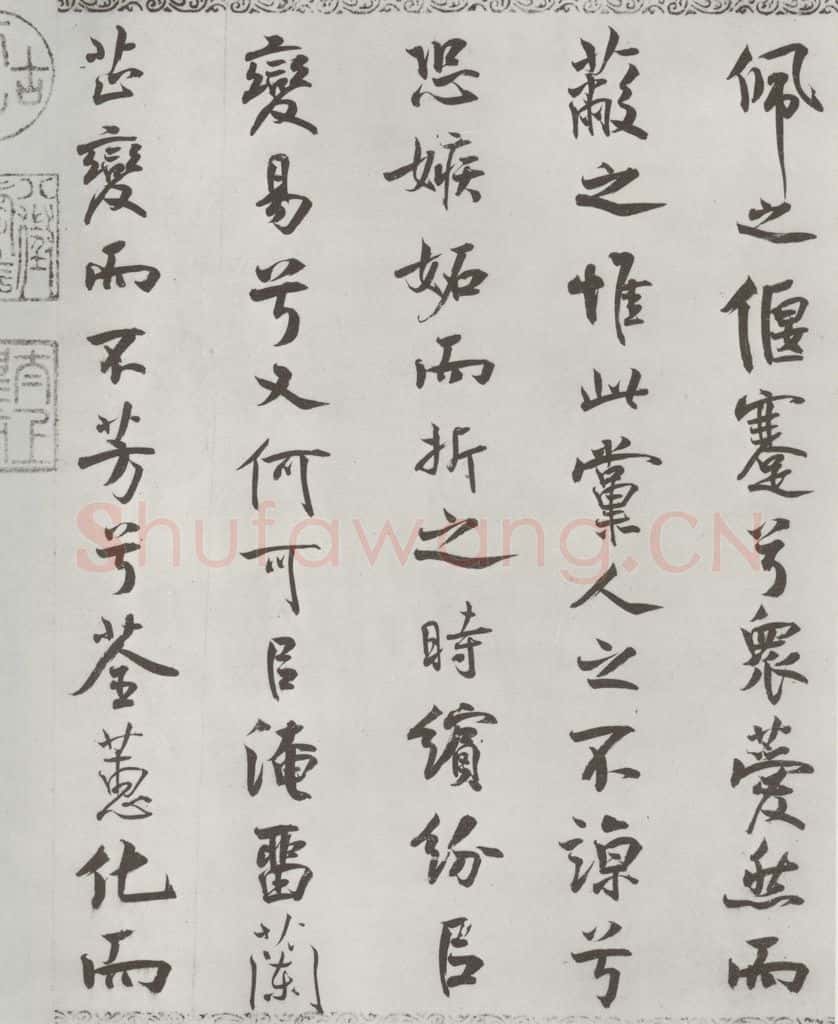 佩之偃蹇兮眾薆然而
蔽之惟此黨人之不諒兮
恐嫉妬而折之時繽紛㠯
變易兮又何可㠯淹留蘭
芷變而不芳兮荃蕙化而
Shufawang.CN